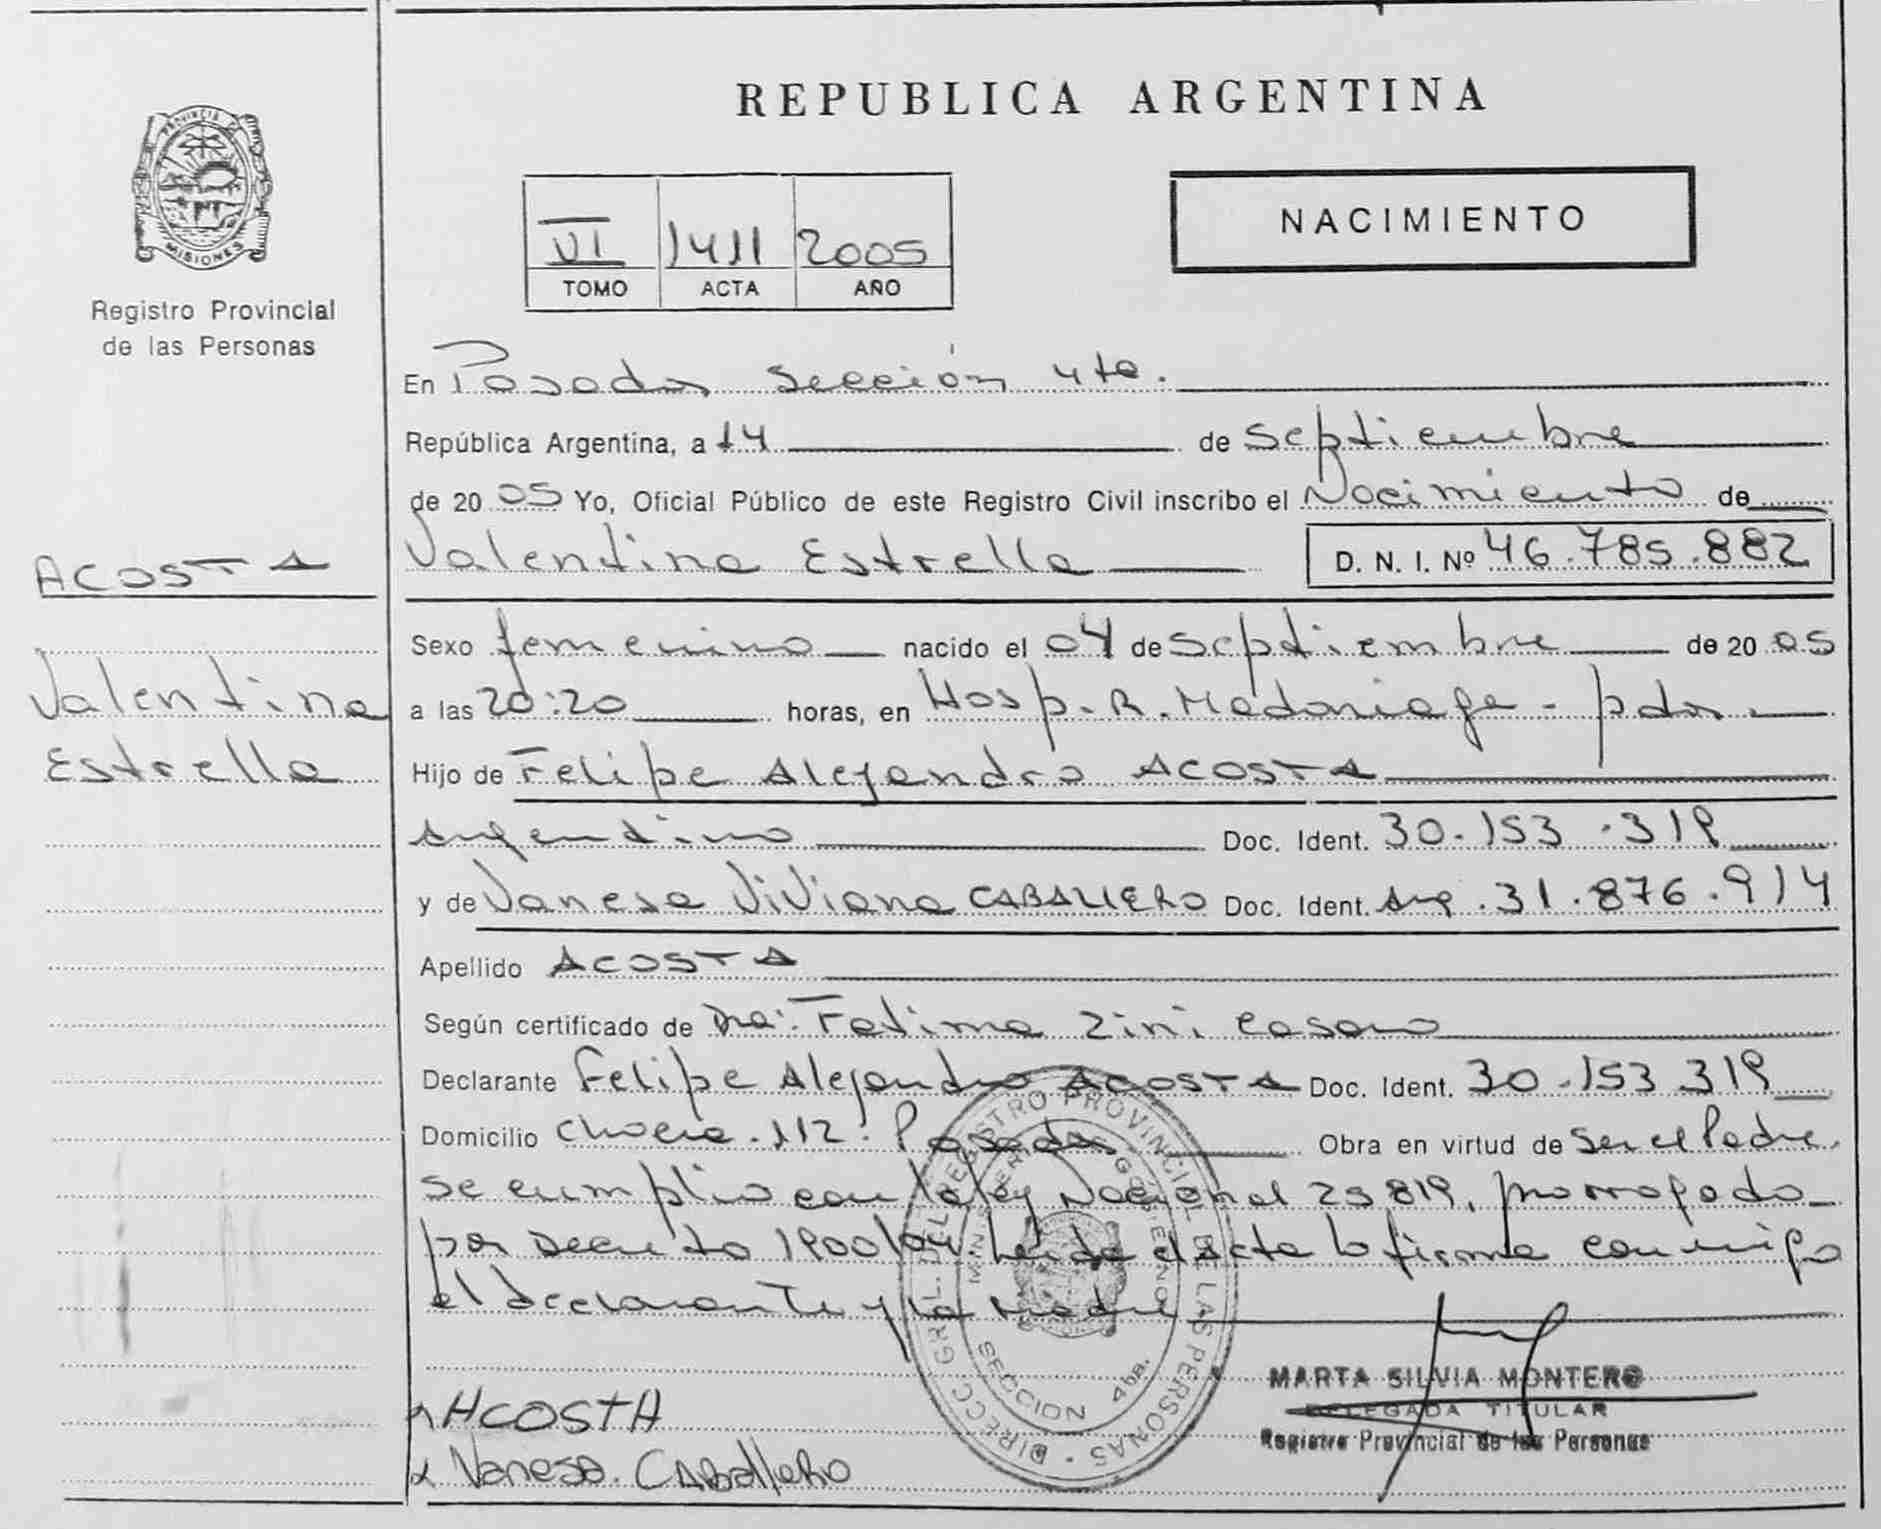 REPUBLICA ARGENTINA
PROVINCIA DE MISIONES
Registro Provincial
de las Personas
VI 1411 2005
TOMO ACTA AÑO
NACIMIENTO
En Posadas, Sección 4ta.
República Argentina, a 14 de Septiembre
de 20 05 Yo, Oficial Público de este Registro Civil inscribo el Nacimiento de
ACOSTA
Valentina Estrella
Valentina Estrella D. N. I. Nº 46.785.882
Sexo femenino nacido el 04 de septiembre de 20 05
a las 20:20 horas, en Hosp. R. Madariaga - pdas
Hijo de Felipe Alejandro ACOSTA
Argentino Doc. Ident. 30.153.319
y de Vanesa Viviana CABALLERO Doc. Ident. Arg. 31.876.914
Apellido ACOSTA
Según certificado de Dra. Fatima Zini
Declarante Felipe Alejandro ACOSTA Doc. Ident. 30.153.319
Domicilio 112. Posadas Obra en virtud de ser el Padre.
Se cumplio con la ley Nacional 25819, prorrogada
por Decreto 1900/04 Leida el acta la firma conmigo
el declarante y la madre
ACOSTA
Vanesa. CABAllERO
DIRECC. GRL. DEL REGISTRO PROVINCIAL DE LAS PERSONAS
GOBIERNO
SECCION 4ta.
MARTA SILVIA MONTERO
DELEGADA TITULAR
Registro Provincial de las Personas